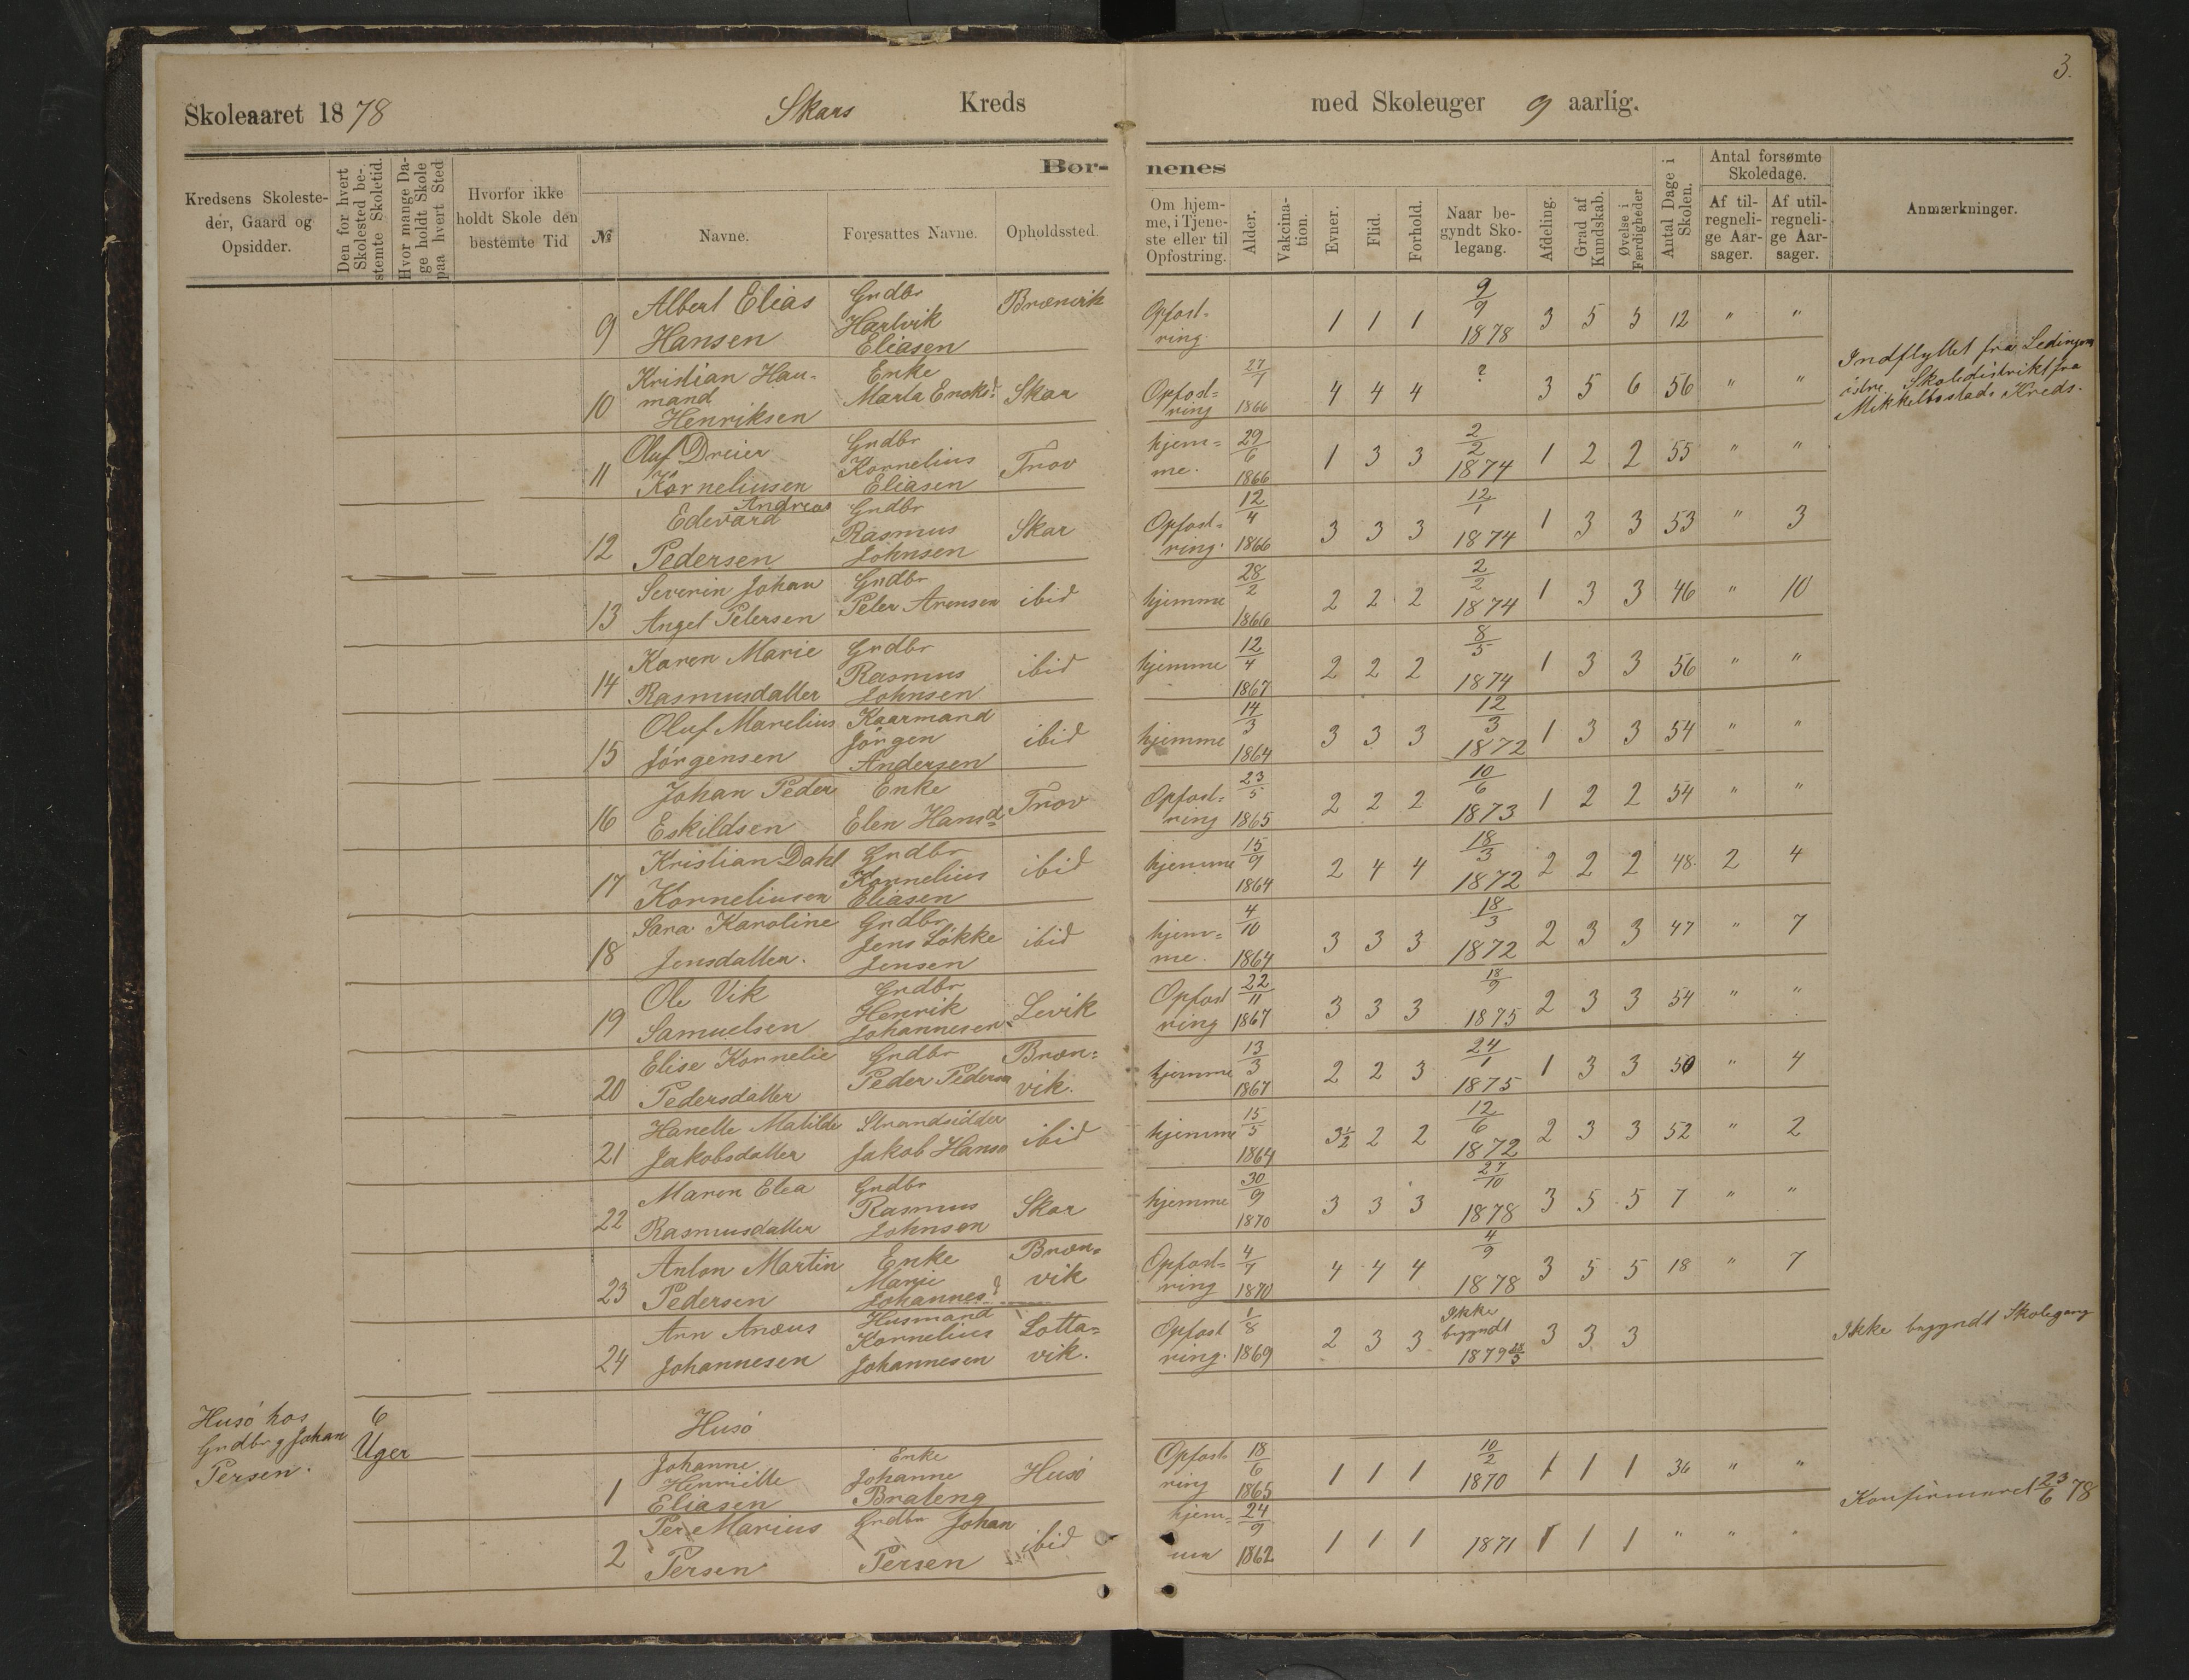 3.
Skoleaaret 1878 Skars Kreds med Skoleuger 9 aarlig.
Kredsens Skolesteder, Gaard og Opsidder.
Den for hvert Skolested bestemte Skoletid.
Hvor mange Dage holdt Skole paa hvert Sted
Hvorfor ikke holdt Skole den bestemte Tid
Børnenes
№
Navne.
Foresattes Navne.
Opholdssted.
Om hjemme, i Tjeneste eller til Opfostring.
Alder.
Vakcination.
Evner.
Flid.
Forhold.
Naar begyndt Skolegang.
Afdeling.
Grad af Kundskab.
Øvelse i Færdigheder
Antal Dage i Skolen.
Antal forsømte Skoledage.
Af tilregnelige Aarsager.
Af utilregnelige Aarsager.
Anmærkninger.
9 Albert Elias Hansen Grdbr Hartvik Eliasen Brænvik Opfostring. 1 1 1 9/9 1878 3 5 5 12 " "
10 Kristian Haumand Henriksen Enke Marta Enoksd. Skar Opfostring 27/1 1866 4 4 4 ? 3 5 6 56 " " Indflyttet fra Ledingens istre Skoledistrikt fra Mikkelbostads Kreds.
11 Oluf Dreier Korneliusen Grdbr Kornelius Eliasen Trov hjemme. 29/6 1866 1 3 3 2/2 1874 1 2 2 55 " "
12 Edevard Andreas Pedersen Grdbr Rasmus Johnsen Skar Opfostring. 12/4 1866 3 3 3 12/1 1874 1 3 3 53 " 3
13 Severin Johan Angel Petersen Grdbr Peter Arensen ibid hjemme 28/2 1866 2 2 2 2/2 1874 1 3 3 46 " 10
14 Karen Marie Rasmusdatter Grdbr Rasmus Johnsen ibid hjemme 12/4 1867 2 2 2 8/5 1874 1 3 3 56 " "
15 Oluf Marelius Jörgensen Kaarmand Jörgen Andersen ibid hjemme 14/3 1864 3 3 3 12/3 1872 1 3 3 54 " "
16 Johan Peder Eskildsen Enke Elen Hansd. Trov Opfostring 23/5 1865 2 2 2 10/6 1873 1 2 2 54 " "
17 Kristian Dahl Korneliusen Grdbr Kornelius Eliasen ibid hjemme 15/9 1864 2 4 4 18/3 1872 2 2 2 48. 2 4
18 Sara Karoline Jensdatter. Grdbr Jens Lökke Jensen ibid hjemme. 4/10 1864 3 3 3 18/3 1872 2 3 3 47 " 7
19 Ole Vik Samuelsen Grdbr Henrik Johannesen Levik Opfostring 22/11 1867 3 3 3 18/9 1875 2 3 3 54 " "
20 Elise Kornelie Pedersdatter Grdbr Peder Pedersen Brænvik. hjemme 13/3 1867 2 2 3 24/1 1875 1 3 3 50 " 4
21 Hanette Matilde Jakobsdatter Strandsidder Jakob Hanse ibid hjemme 15/5 1864 3½ 2 2 12/6 1872 2 3 3 52 " 2
22 Maren Elea Rasmusdatter Grdbr Rasmus Johnsen Skar hjemme 30/9 1870 3 3 3 27/10 1878 3 5 5 7 " "
23 Anton Martin Pedersen Enke Marie Johannesd Brænvik Opfostring 4/7 1870 4 4 4 4/9 1878 3 5 5 18 " 7
24 Arn Anæus Johannesen Husmand Kornelius Johannesen Lottavik. Opfostring. 1/8 1869 2 3 3 Ikke begyndt 1879 3 3 3 Ikke begyndt Skolegang
Husö hos Grdbrg Johan Persen. 6 Uger
Husö
1 Johanne Henriette Eliasen Enke Johanne Brateng Husö Opfostring 18/6 1865 1 1 1 10/2 1870 1 1 1 36 " "
2 Per Marius Persen Grdbr Johan Persen ibid hjemme 24/9 1862 1 1 1 1871 1 1 1 " " " Konfirmeret 23/6 78